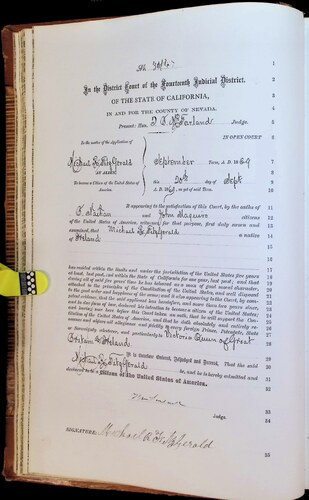 1
In the District Court of the Fourteenth Judicial District, 2
OF THE STATE OF CALIFORNIA, 3
IN AND FOR THE COUNTY OF NEVADA. 4
Present: Hon. T. B. McFarland Judge. 5
IN OPEN COURT 6
In the matter of the Application of
Michael R. FitzGerald September Term, A. D. 1869 7
AN ALIEN, 8
To become a Citizen of the United States of this 20th day of Sept 9
America. A. D. 1869 as yet of said Term. 10
It appearing to the satisfaction of this Court, by the oaths of 11
and John Maguire citizens 12
of the United States of America, witnesses for that purpose, first duly sworn and 13
examined, that Michael R. FitzGerald a native 14
of Ireland 15
16
17
has resided within the limits and under the jurisdiction of the United States five years 18
at least, last past, and within the State of California for one year, last past; and that 19
during all of said five years' time he has behaved as a man of good moral character, 20
attached to the principles of the Constitution of the United States, and well disposed 21
to the good order and happiness of the same; and it also appearing to the Court, by com- 22
petent evidence, that the said applicant has heretofore, and more than two years since, 23
and in due form of law, declared his intention to become a citizen of the United States, 24
and having now here before this Court taken an oath, that he will support the Con- 25
stitution of the United States of America, and that he doth absolutely and entirely re- 26
nounce and abjure all allegiance and fidelity to every foreign Prince, Potentate, State 27
or Sovereignty whatever, and particularly to Victoria Queen of Great
Britain & Ireland 28
It is therefore Ordered, Adjudged and Decreed, That the said 29
Michael R. FitzGerald be, and is hereby admitted and 30
declared to be a Citizen of the United States of America. 31
32
33
Judge. 34
SIGNATURE: Michael R FitzGerald
35